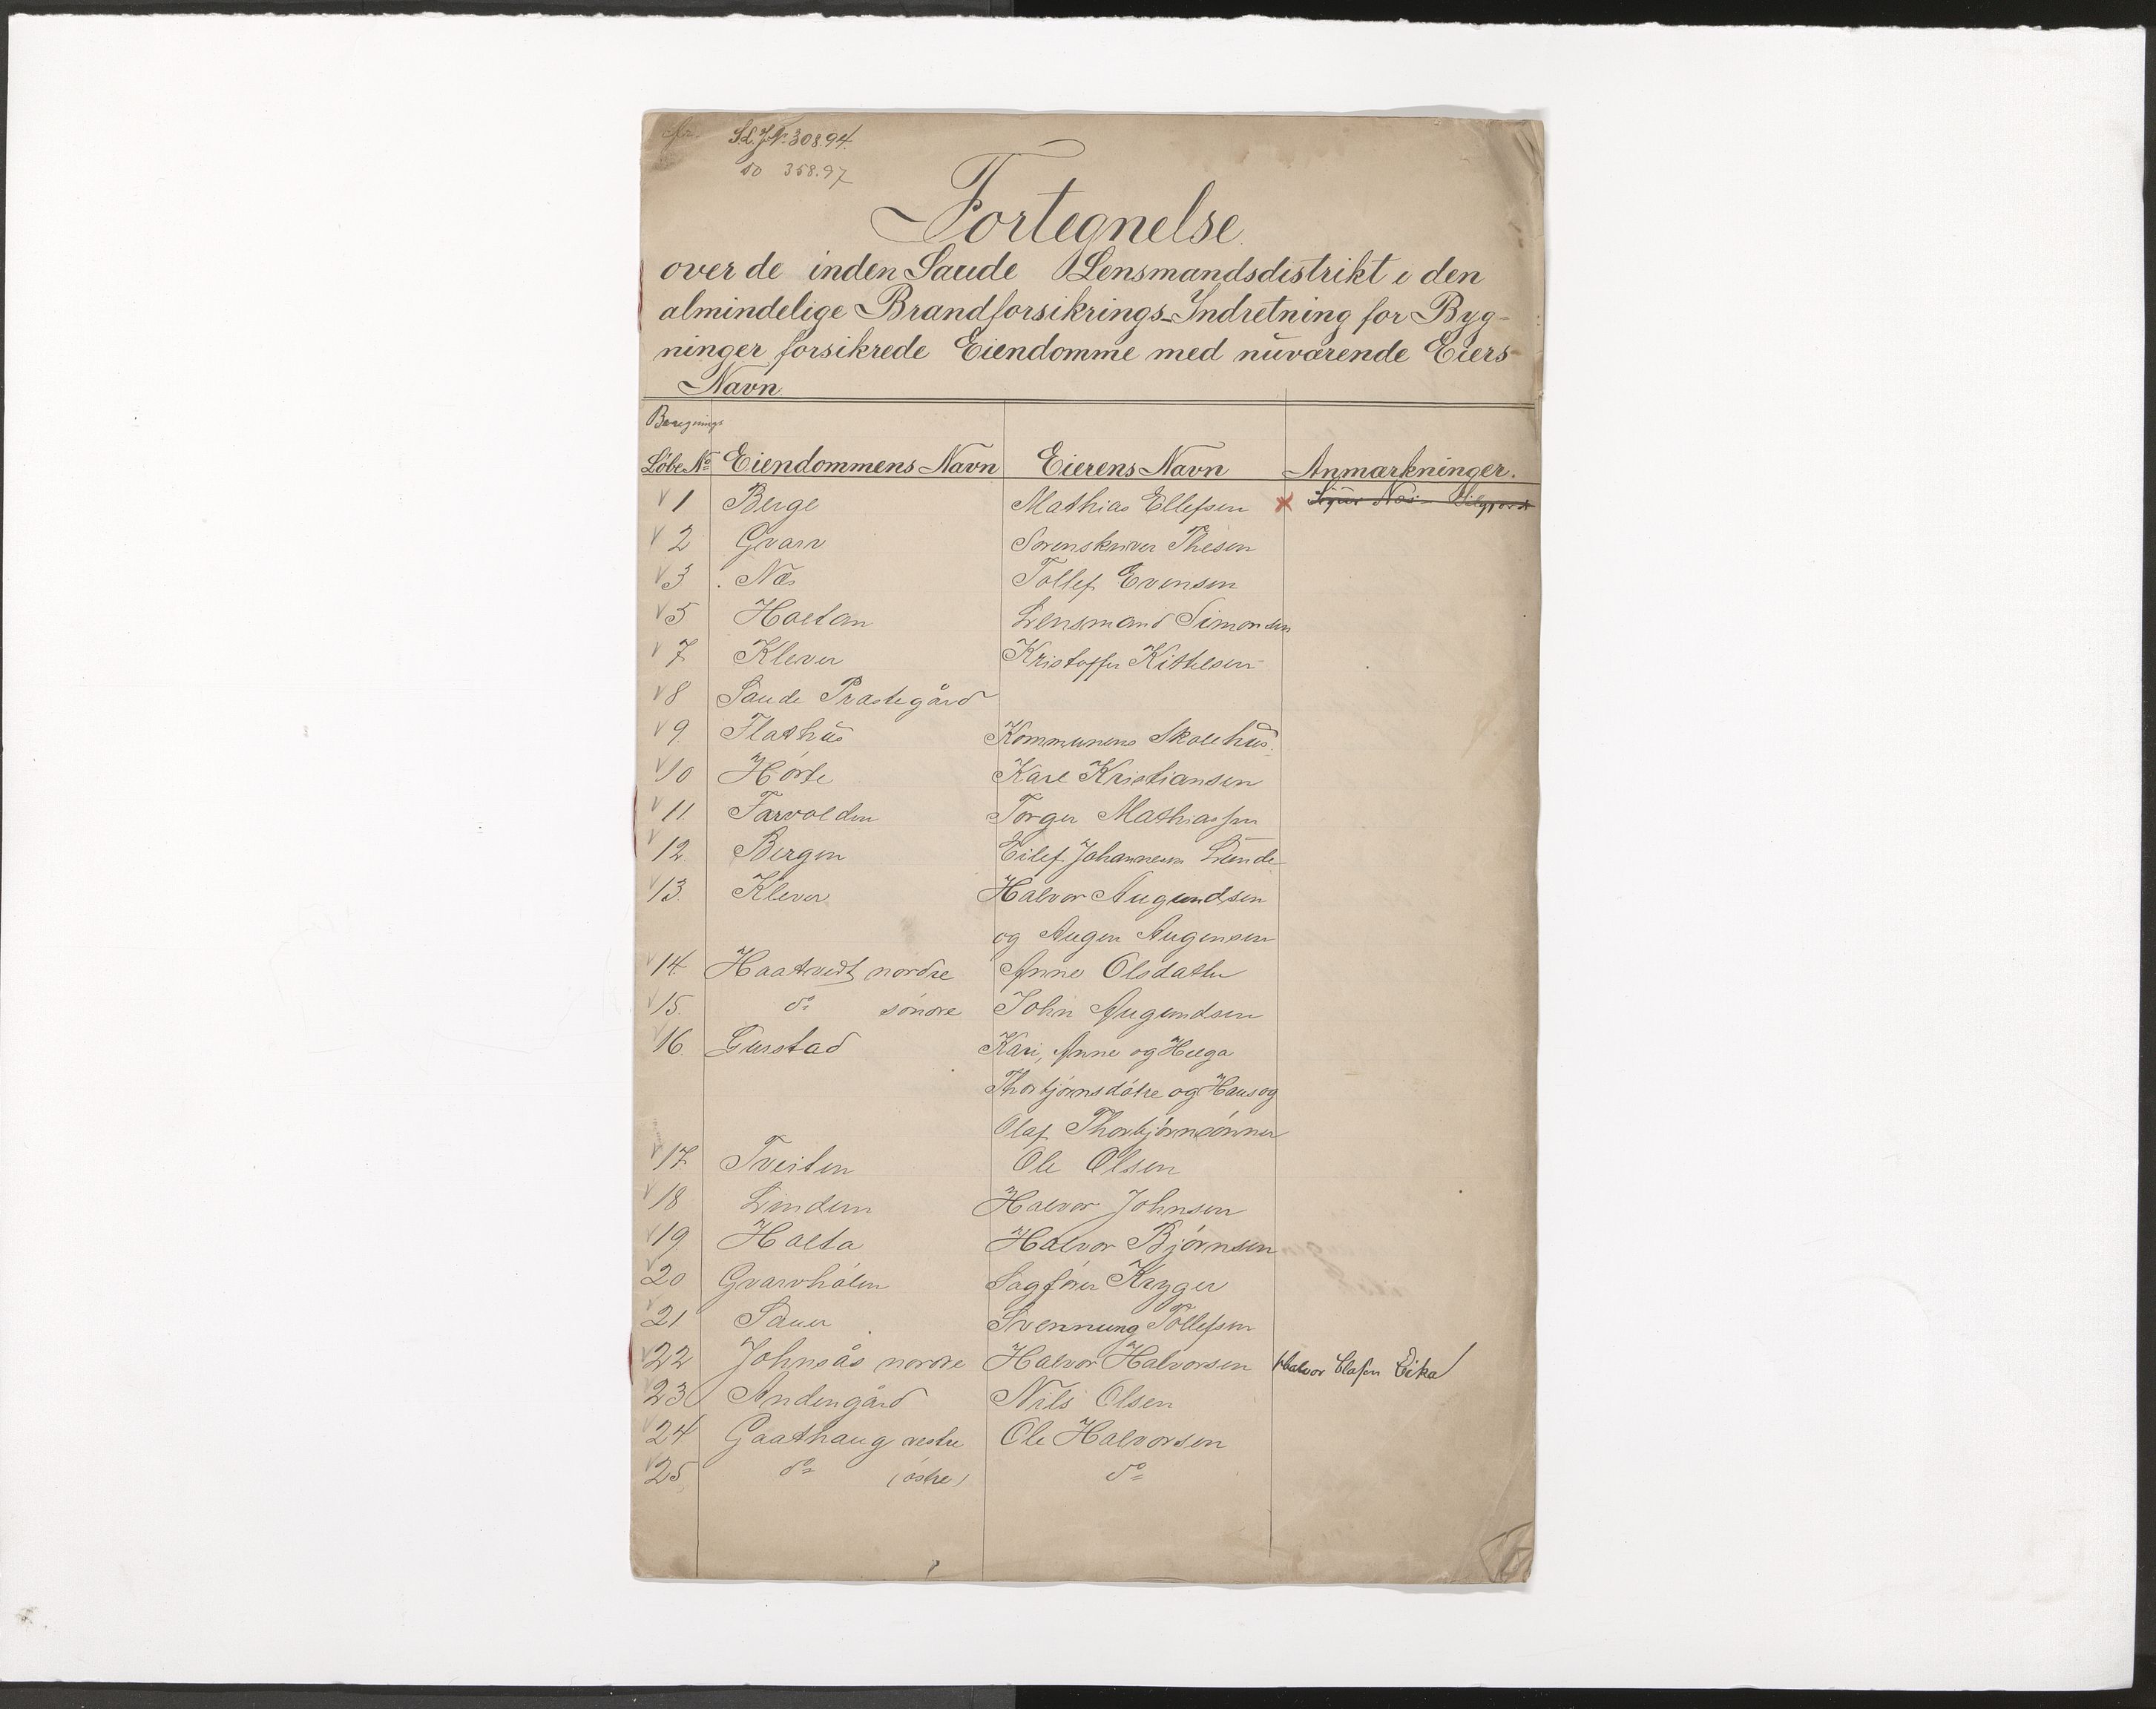 S.L.J.N. 308.94.
do 358.97
Fortegnelse
over de inden Saude Lensmandsdistrikt i den
almindelige Brandforsikrings-Indretning for Byg-
ninger forsikrede Eiendomme med nuværende Eiers
Navn
Løbe No Eiendommens Navn Eierens Navn Anmærkninger.
1 Berge Mathias Ellefsen x
2 Gvarv Sorenskriver Thesen
3 Næs Tollef Evensen
5 Holtan Lensmand Simonsen
7 Klever Kristoffer Kittelsen
8 Saude Præstegård
9 Flathus Kommunens Skolehus
10 Hørte Karl Kristiansen
11 Farvolden Torger Mathiassen
12 Bergen Eilef Johannesen Lunde
13 Klever Halvor Augundsen
og Augen Augensen
14 Haatvedt nordre Anne Olsdatter
15 do søndre John Augundsen
16 Gurstad Kari, Anne og Helga
Thorbjørnsdøtre og Hans og
Olaf Thorbjørnsønner
17 Tveiten Ole Olsen
18 Lindem Halvor Johnsen
19 Holta Halvor Bjørnsen
20 Gvarvhólen Sagfører Kryger
21 Sauer Svennung Tollefsen
22 Johnsås nordre Halvor Halvorsen Halvor Olafsen Eika
23 Andengård Nils Olsen
24 Gaathaug vestre Ole Halvorsen
25 do (østre) do